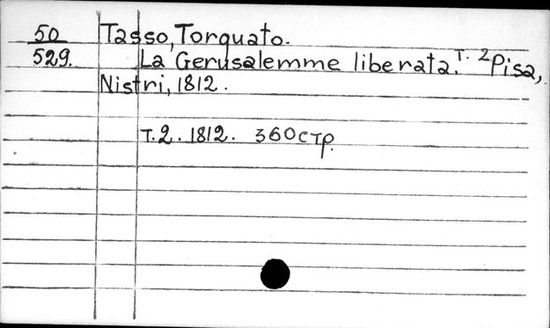 50 Tasso, Torquato.
529. La Gerusalemme liberata. т. 2 Pisa,
Nistri, 1812.
т. 2. 1812. 360 стр.